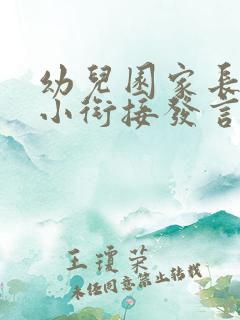 幼兒園家長
小銜接發言
王瓊榮
未经同意禁止转载